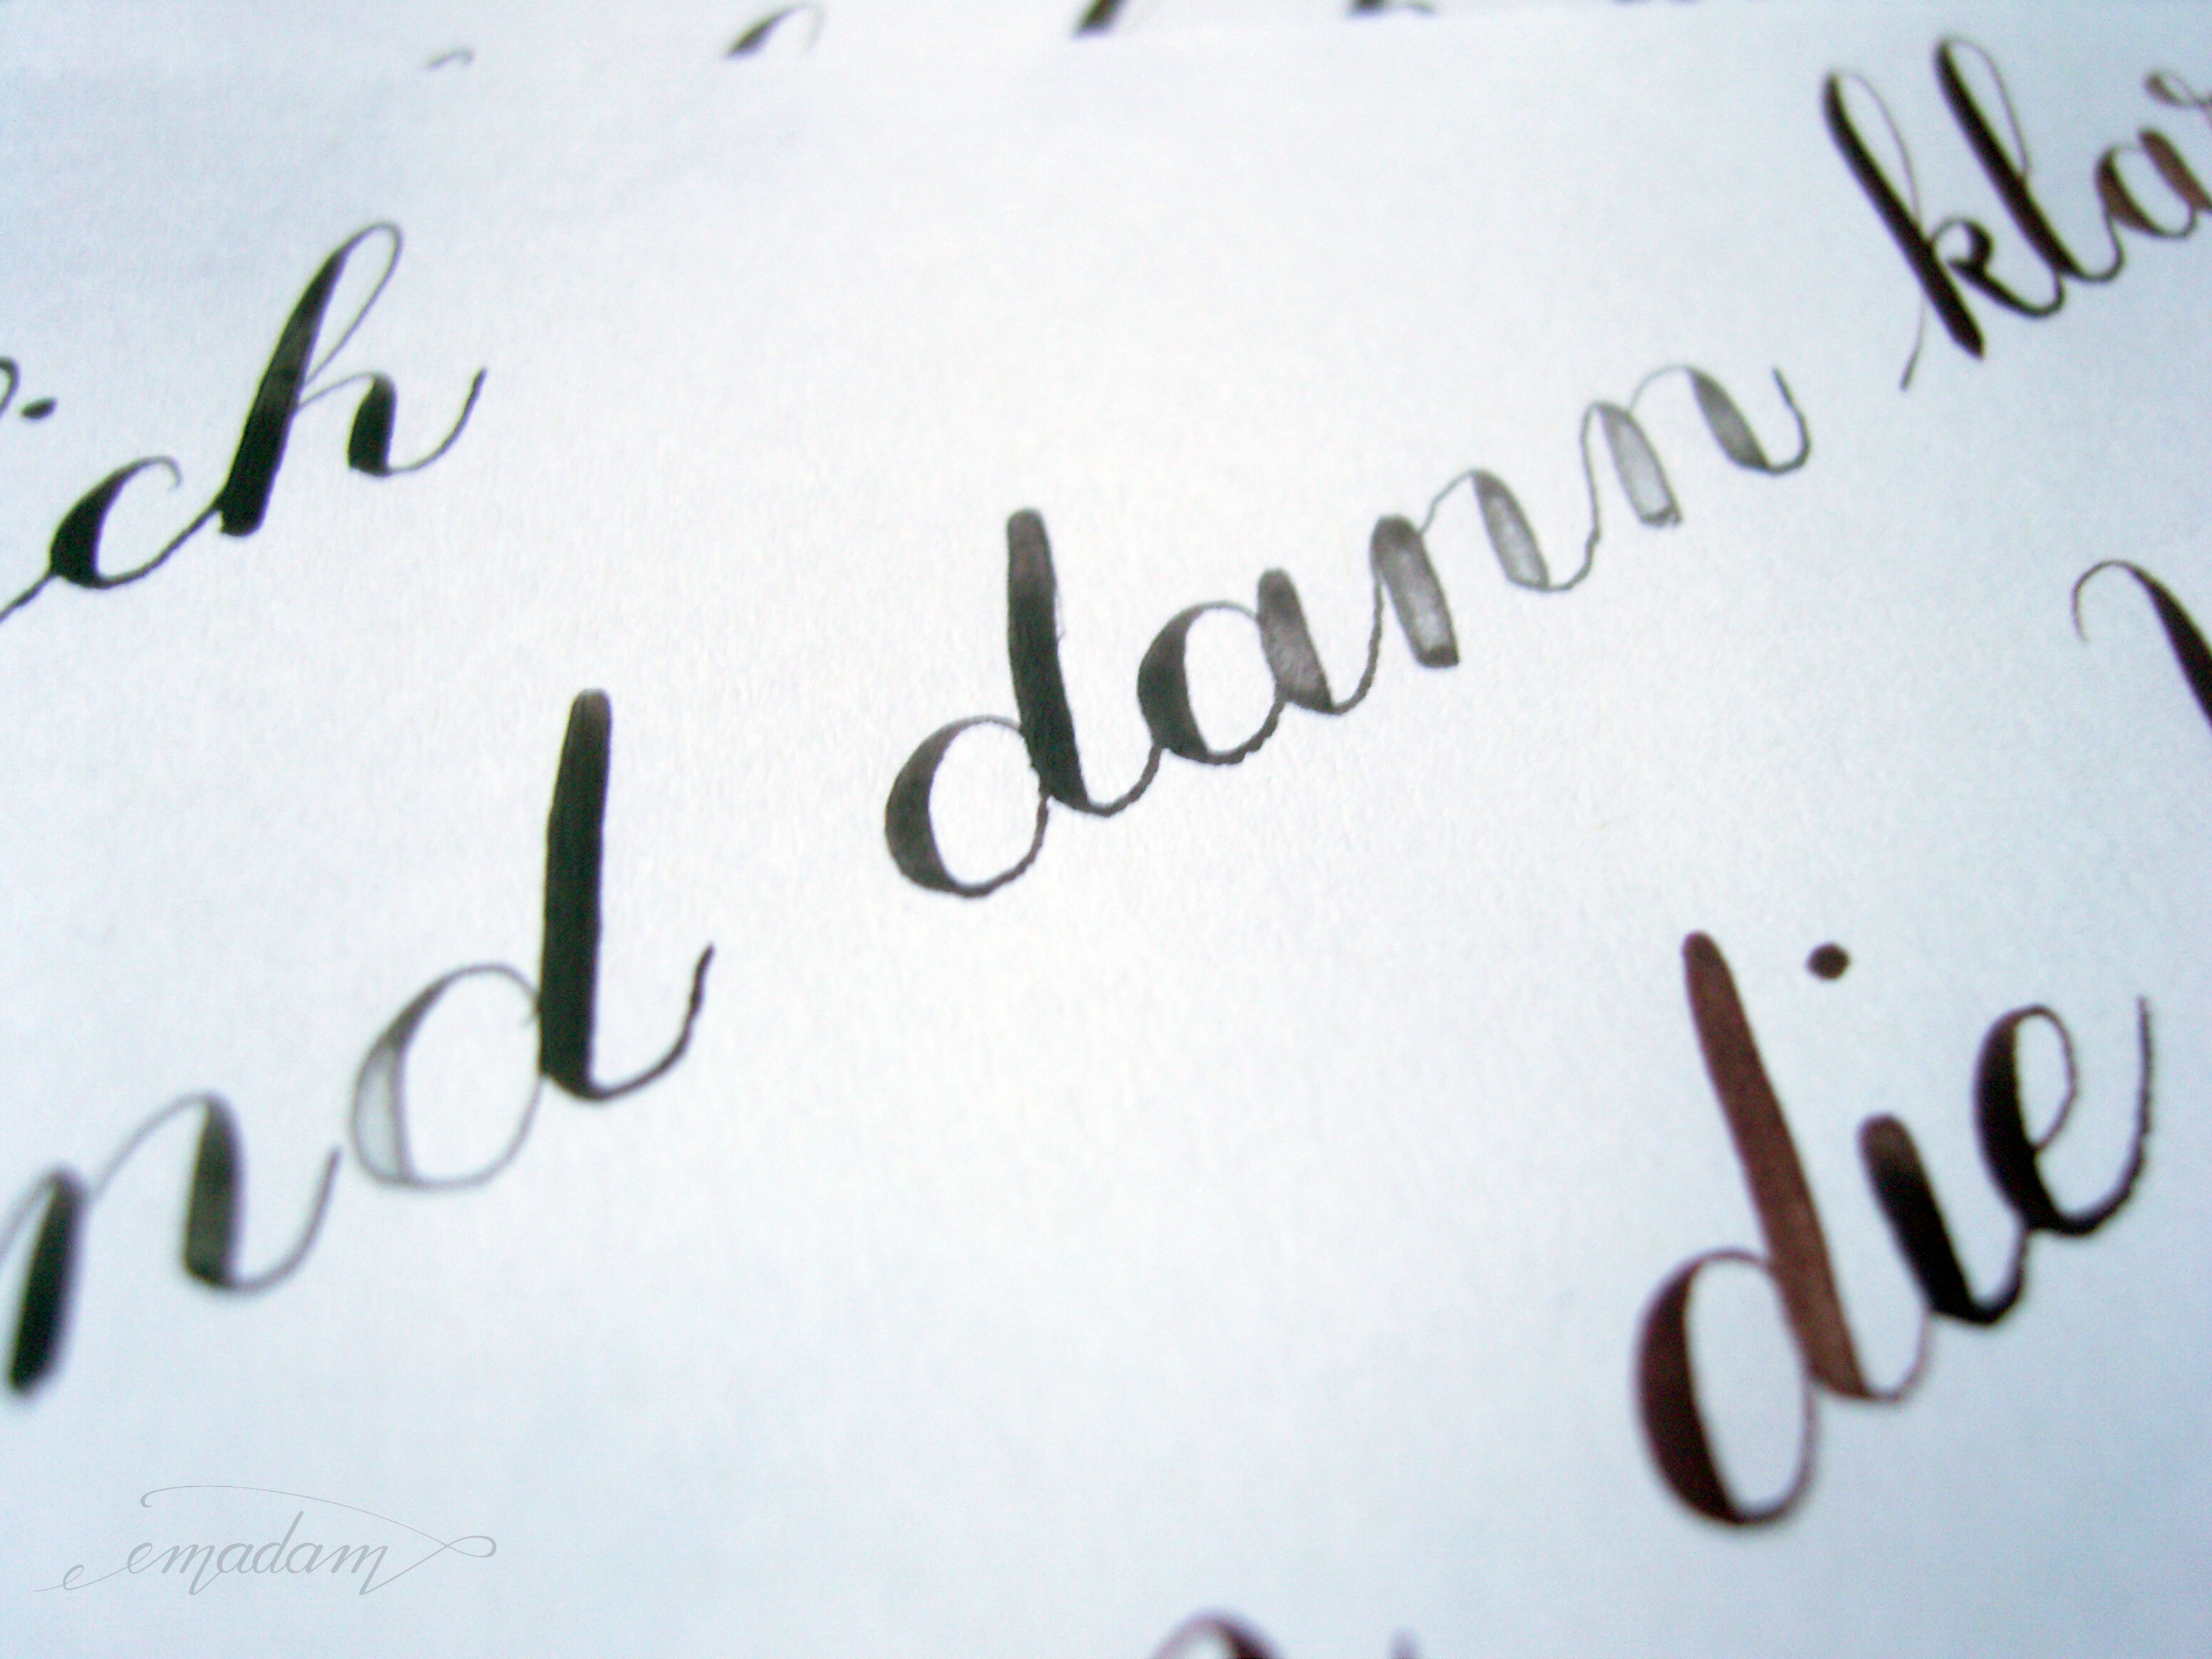 ch
nd dann klar
die
emadam